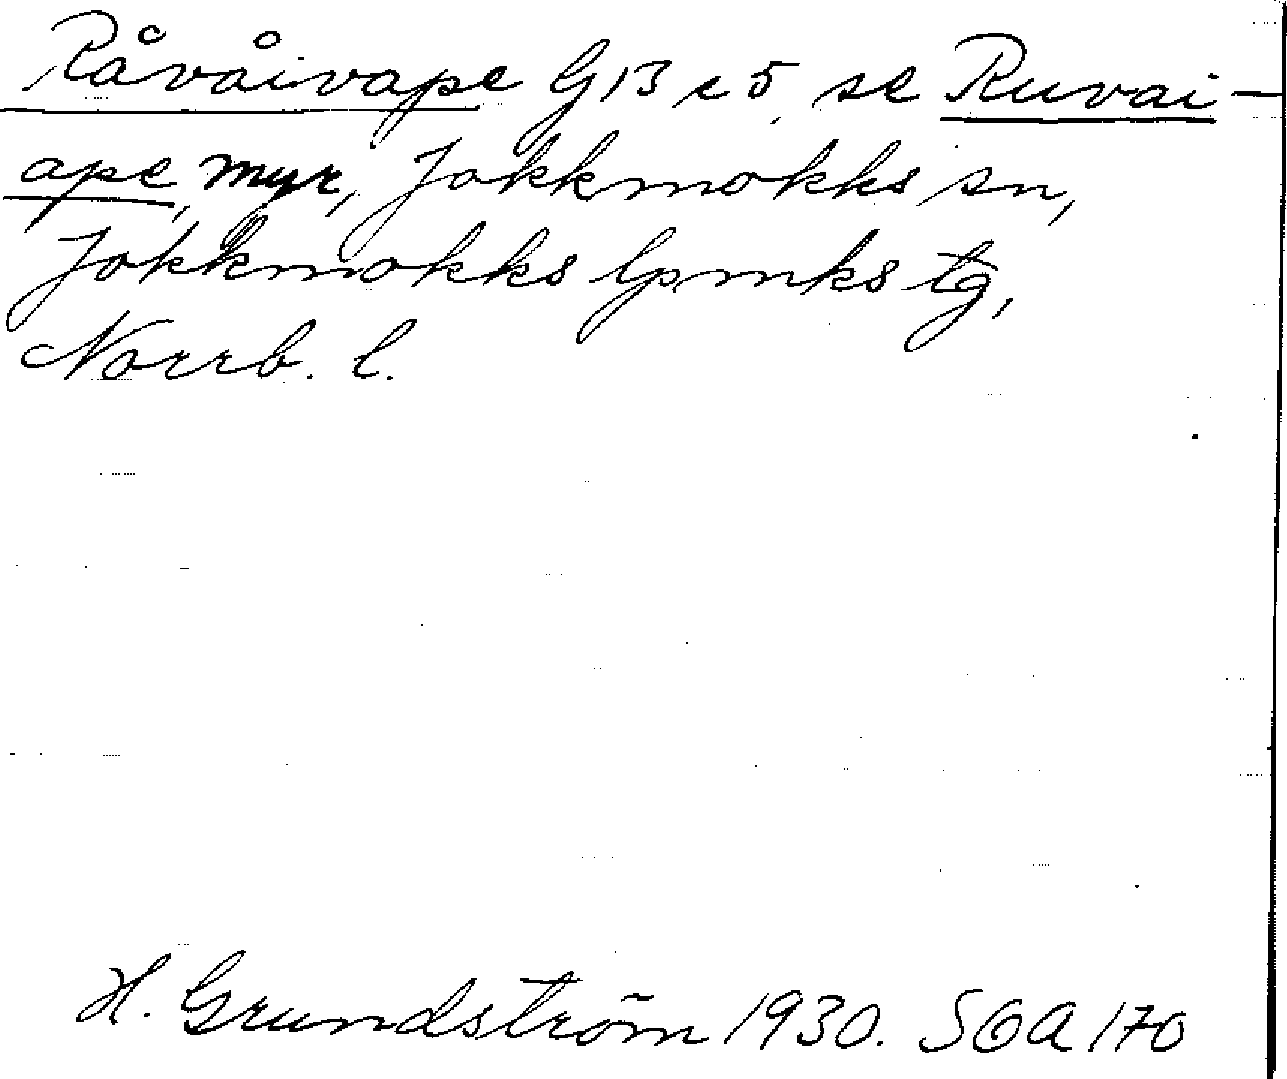 Råvåivape G13 c 5, se Ruvai-
ape, myr, Jokkmokks sn,
Jokkmokks lpmks tg,
Norrb. l.
H. Grundström 1930. SOA 170